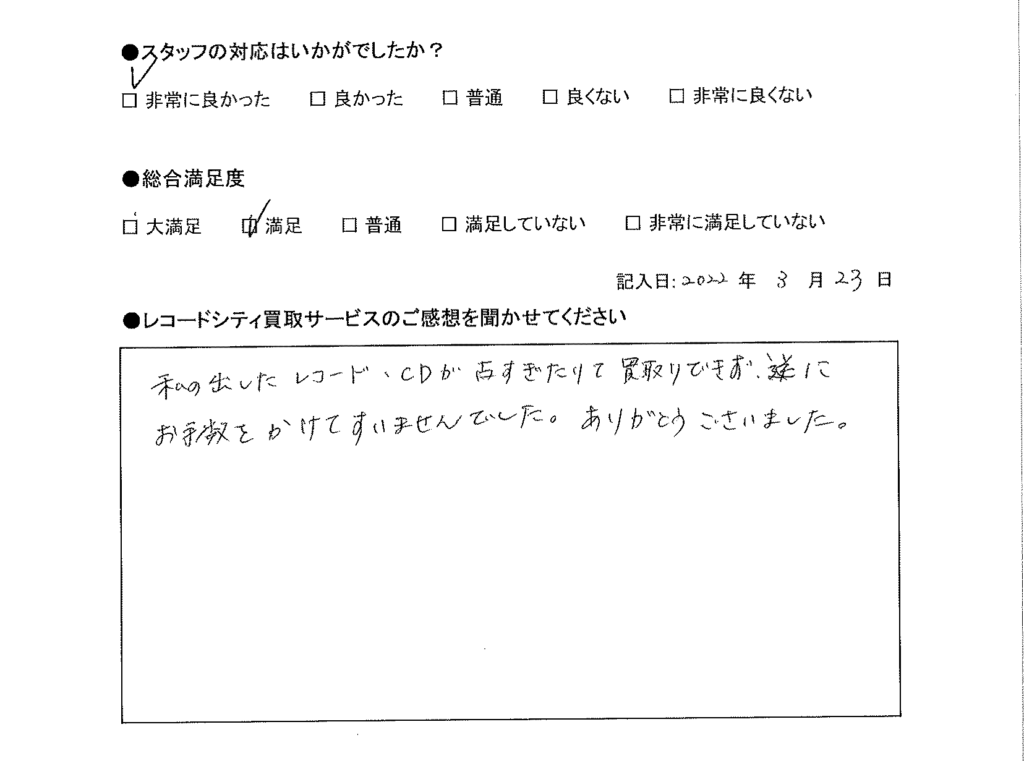 ●スタッフの対応はいかがでしたか？
□ 非常に良かった □ 良かった □ 普通 □ 良くない □ 非常に良くない
●総合満足度
□ 大満足 □ 満足 □ 普通 □ 満足していない □ 非常に満足していない
記入日: 2022 年 3 月 23 日
●レコードシティ買取サービスのご感想を聞かせてください
私の出したレコード、CDが古すぎたりて買取りできず、逆に
お手数をかけてすいませんでした。ありがとうございました。